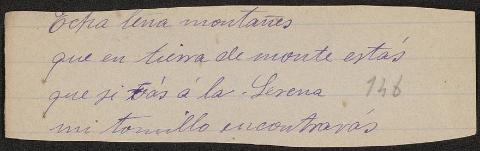 Echa lena montañes
que en tierra de monte estás
que si vás á la Serena 146
mi tomillo encontrarás